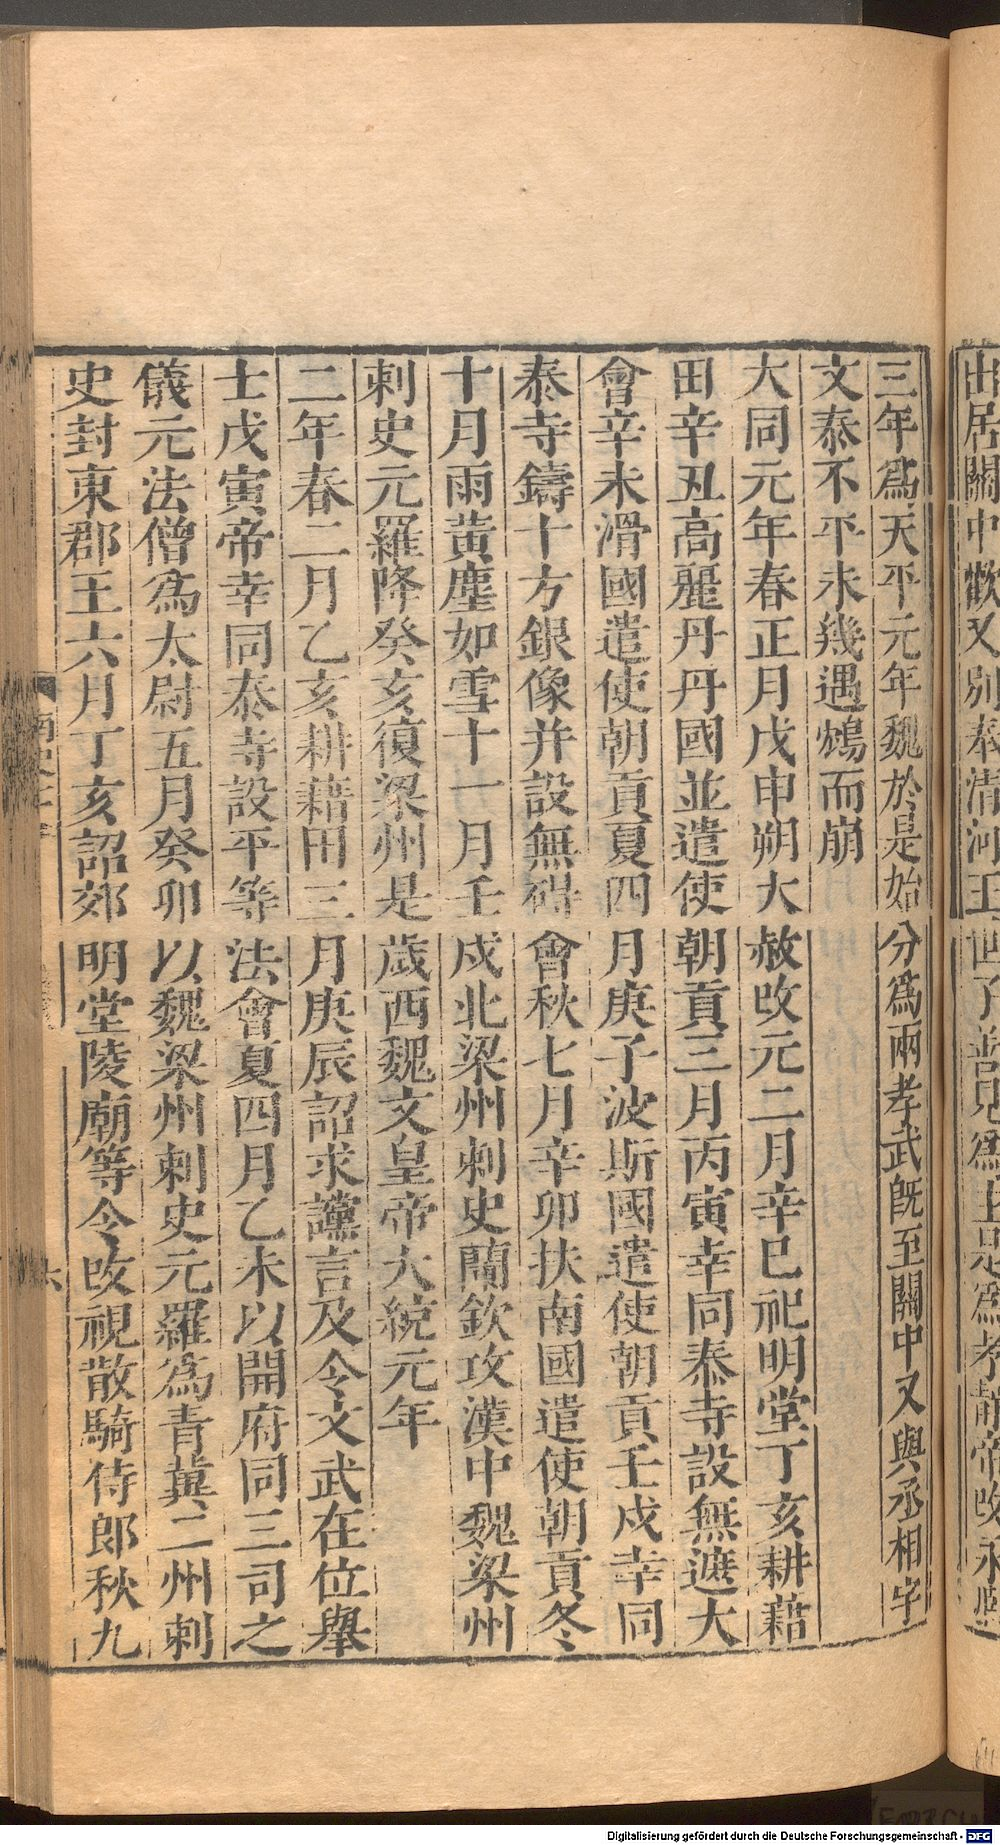 出居關中歡又別奉淸河王世子善見爲主是爲孝靜帝改永熙
三年爲天平元年魏於是始分爲兩孝武旣至關中又與丞相宇
文泰不平未幾遇鴆而崩
大同元年春正月戊申朔大赦改元二月辛巳祀明堂丁亥耕藉
田辛丑高麗丹丹國並遣使朝貢三月丙寅幸同泰寺設無遮大
會辛未滑國遣使朝貢夏四月庚子波斯國遣使朝貢壬戌幸同
泰寺鑄十方銀像并設無㝵會秋七月辛卯扶南國遣使朝貢冬
十月雨黃塵如雪十一月壬戌北梁州刺史蘭欽攻漢中魏梁州
刺史元羅降癸亥復梁州是歲西魏文皇帝大統元年
二年春二月乙亥耕藉田三月庚辰詔求讜言及令文武在位舉
士戊寅帝幸同泰寺設平等法會夏四月乙未以開府同三司之
儀元法僧爲太尉五月癸卯以魏梁州刺史元羅爲靑冀二州刺
史封東郡王六月丁亥詔郊明堂陵廟等令改視散騎侍郎秋九
南史七
六
Digitalisierung gefördert durch die Deutsche Forschungsgemeinschaft - DFG